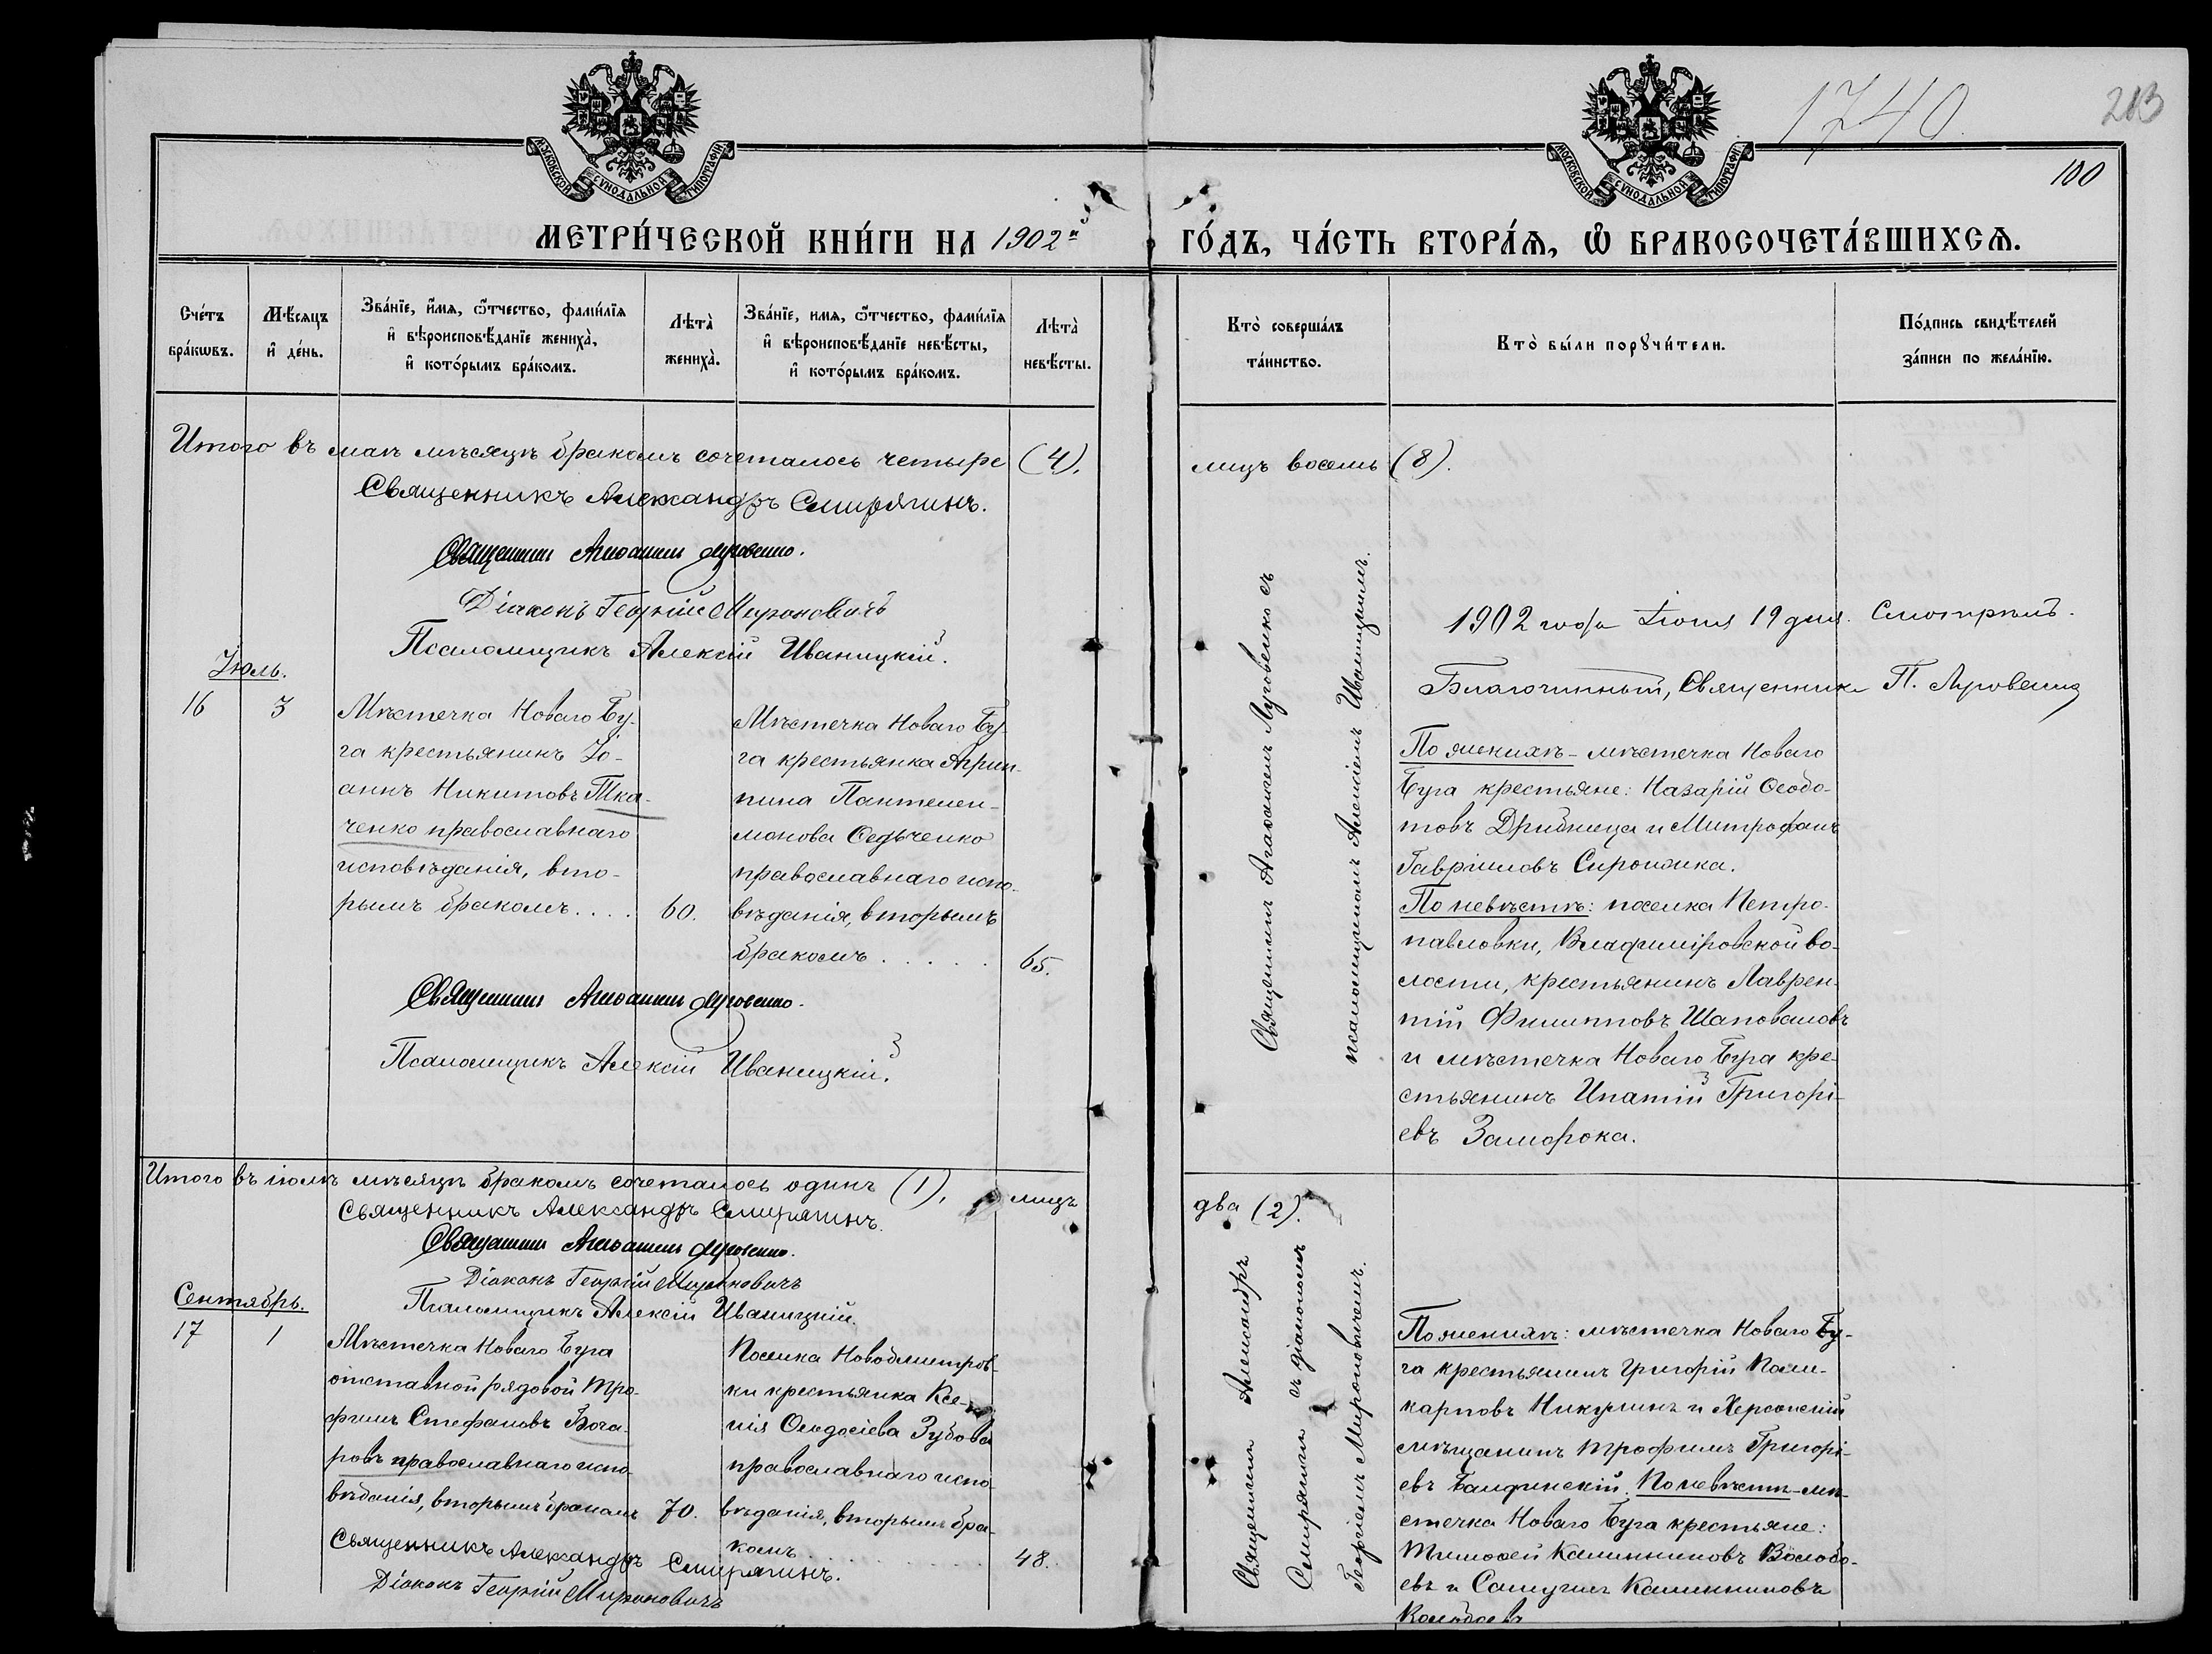 1740.
213
100
МОСКОВСКОЙ СѴНОДАЛЬНОЙ ТИПОГРАФІИ
МОСКОВСКОЙ СѴНОДАЛЬНОЙ ТИПОГРАФІИ
МЕТРИ́ЧЕСКОЙ КНИ́ГИ НА 1902й ГО́ДЪ, ЧА́СТЬ ВТОРА́Я, Ѽ БРАКОСОЧЕТА́ВШИХСЯ.
Сче́тъ
бра́кѡвъ.
Мѣ́сяцъ
и҆ де́нь.
Зва́нїе, и҆́мя, ѻ҆́тчество, фамѝлїя
и҆ вѣроисповѣ́данїе жениха̀,
и҆ кото́рымъ бра́комъ.
Лѣта̀
жениха̀.
Зва́нїе, имя, ѻ҆́тчество, фамѝлїя
и҆ вѣроисповѣ́данїе невѣ́сты,
и҆ кото́рымъ бра́комъ.
Лѣта̀
невѣ́сты.
Кто̀ соверша́лъ
та́инство.
Кто̀ бы́ли порꙋчи́тели.
По́дпись свидѣ́телей
за́писи по жела́нїю.
Итого въ маѣ мѣсяцѣ бракомъ сочеталось четыре (4), лицъ восемь (8).
Священникъ Александръ Смирягинъ.
Священникъ Агаѳангелъ Луговенко.
Діаконъ Георгій Мироновичъ
Псаломщикъ Алексій Иваницкій.
1902 года Іюня 19 дня. Смотрѣлъ.
Благочинный, Священникъ П. Луговенко
Іюль.
16
3
Мѣстечка Новаго Бу-
га крестьянинъ Іо-
аннъ Никитовъ Тка-
ченко православнаго
исповѣданія, вто-
рымъ бракомъ....
60.
Мѣстечка Новаго Бу-
га крестьянка Агрип-
пина Пантелей-
монова Седьченко
православнаго испо-
вѣданія, вторымъ
бракомъ.....
65.
Священникъ Агаѳангелъ Луговенко.
Псаломщикъ Алексій Иваницкій.
Священникъ Агаѳангелъ Луговенко съ
псаломщикомъ Алексіемъ Иваницкимъ.
По женихѣ - мѣстечка Новаго
Буга крестьяне: Назарій Ѳеодо-
товъ Дрибница и Митрофанъ
Гавріиловъ Сиротика.
По невѣстѣ: поселка Петро-
павловки, Владиміровской во-
лости, крестьянинъ Лаврен-
тій Филипповъ Шаповаловъ
и мѣстечка Новаго Буга кре-
стьянинъ Ипатій Григорі-
евъ Заморока.
Итого въ іюлѣ мѣсяцѣ бракомъ сочеталось одинъ (1), лицъ два (2).
Священникъ Александръ Смирягинъ.
Священникъ Агаѳангелъ Луговенко.
Діаконъ Георгій Мироновичъ
Псаломщикъ Алексій Иваницкій.
Сентябрь.
17
1
Мѣстечка Новаго Буга
отставной рядовой Тро-
фимъ Стефановъ Боча-
ровъ православнаго испо-
вѣданія, вторымъ бракомъ
70.
Поселка Новодмитров-
ки крестьянка Ксе-
нія Ѳеодосіева Зубова
православнаго испо-
вѣданія, вторымъ бра-
комъ.........
48.
Священникъ Александръ Смирягинъ.
Діаконъ Георгій Мироновичъ
Священникъ Александръ
Смирягинъ съ діакономъ
Георгіемъ Мироновичемъ.
По женихѣ: мѣстечка Новаго Бу-
га крестьянинъ Григорій Поли-
карповъ Никулинъ и Херсонскій
мѣщанинъ Трофимъ Григорі-
евъ Балдинскій. По невѣстѣ - мѣ-
стечка Новаго Буга крестьяне:
Тимоѳей Калинниковъ
евъ и Самуилъ Калинниковъ